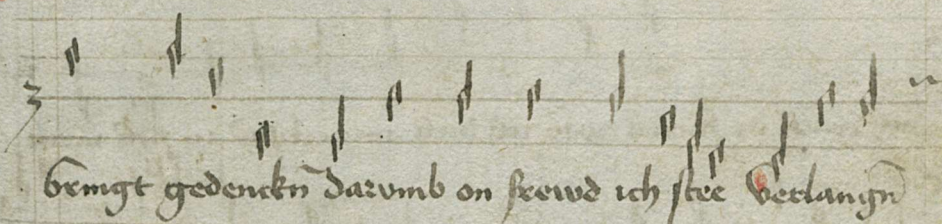 bringt gedenckn̄ darumb on frewd ich stee verlangn̄